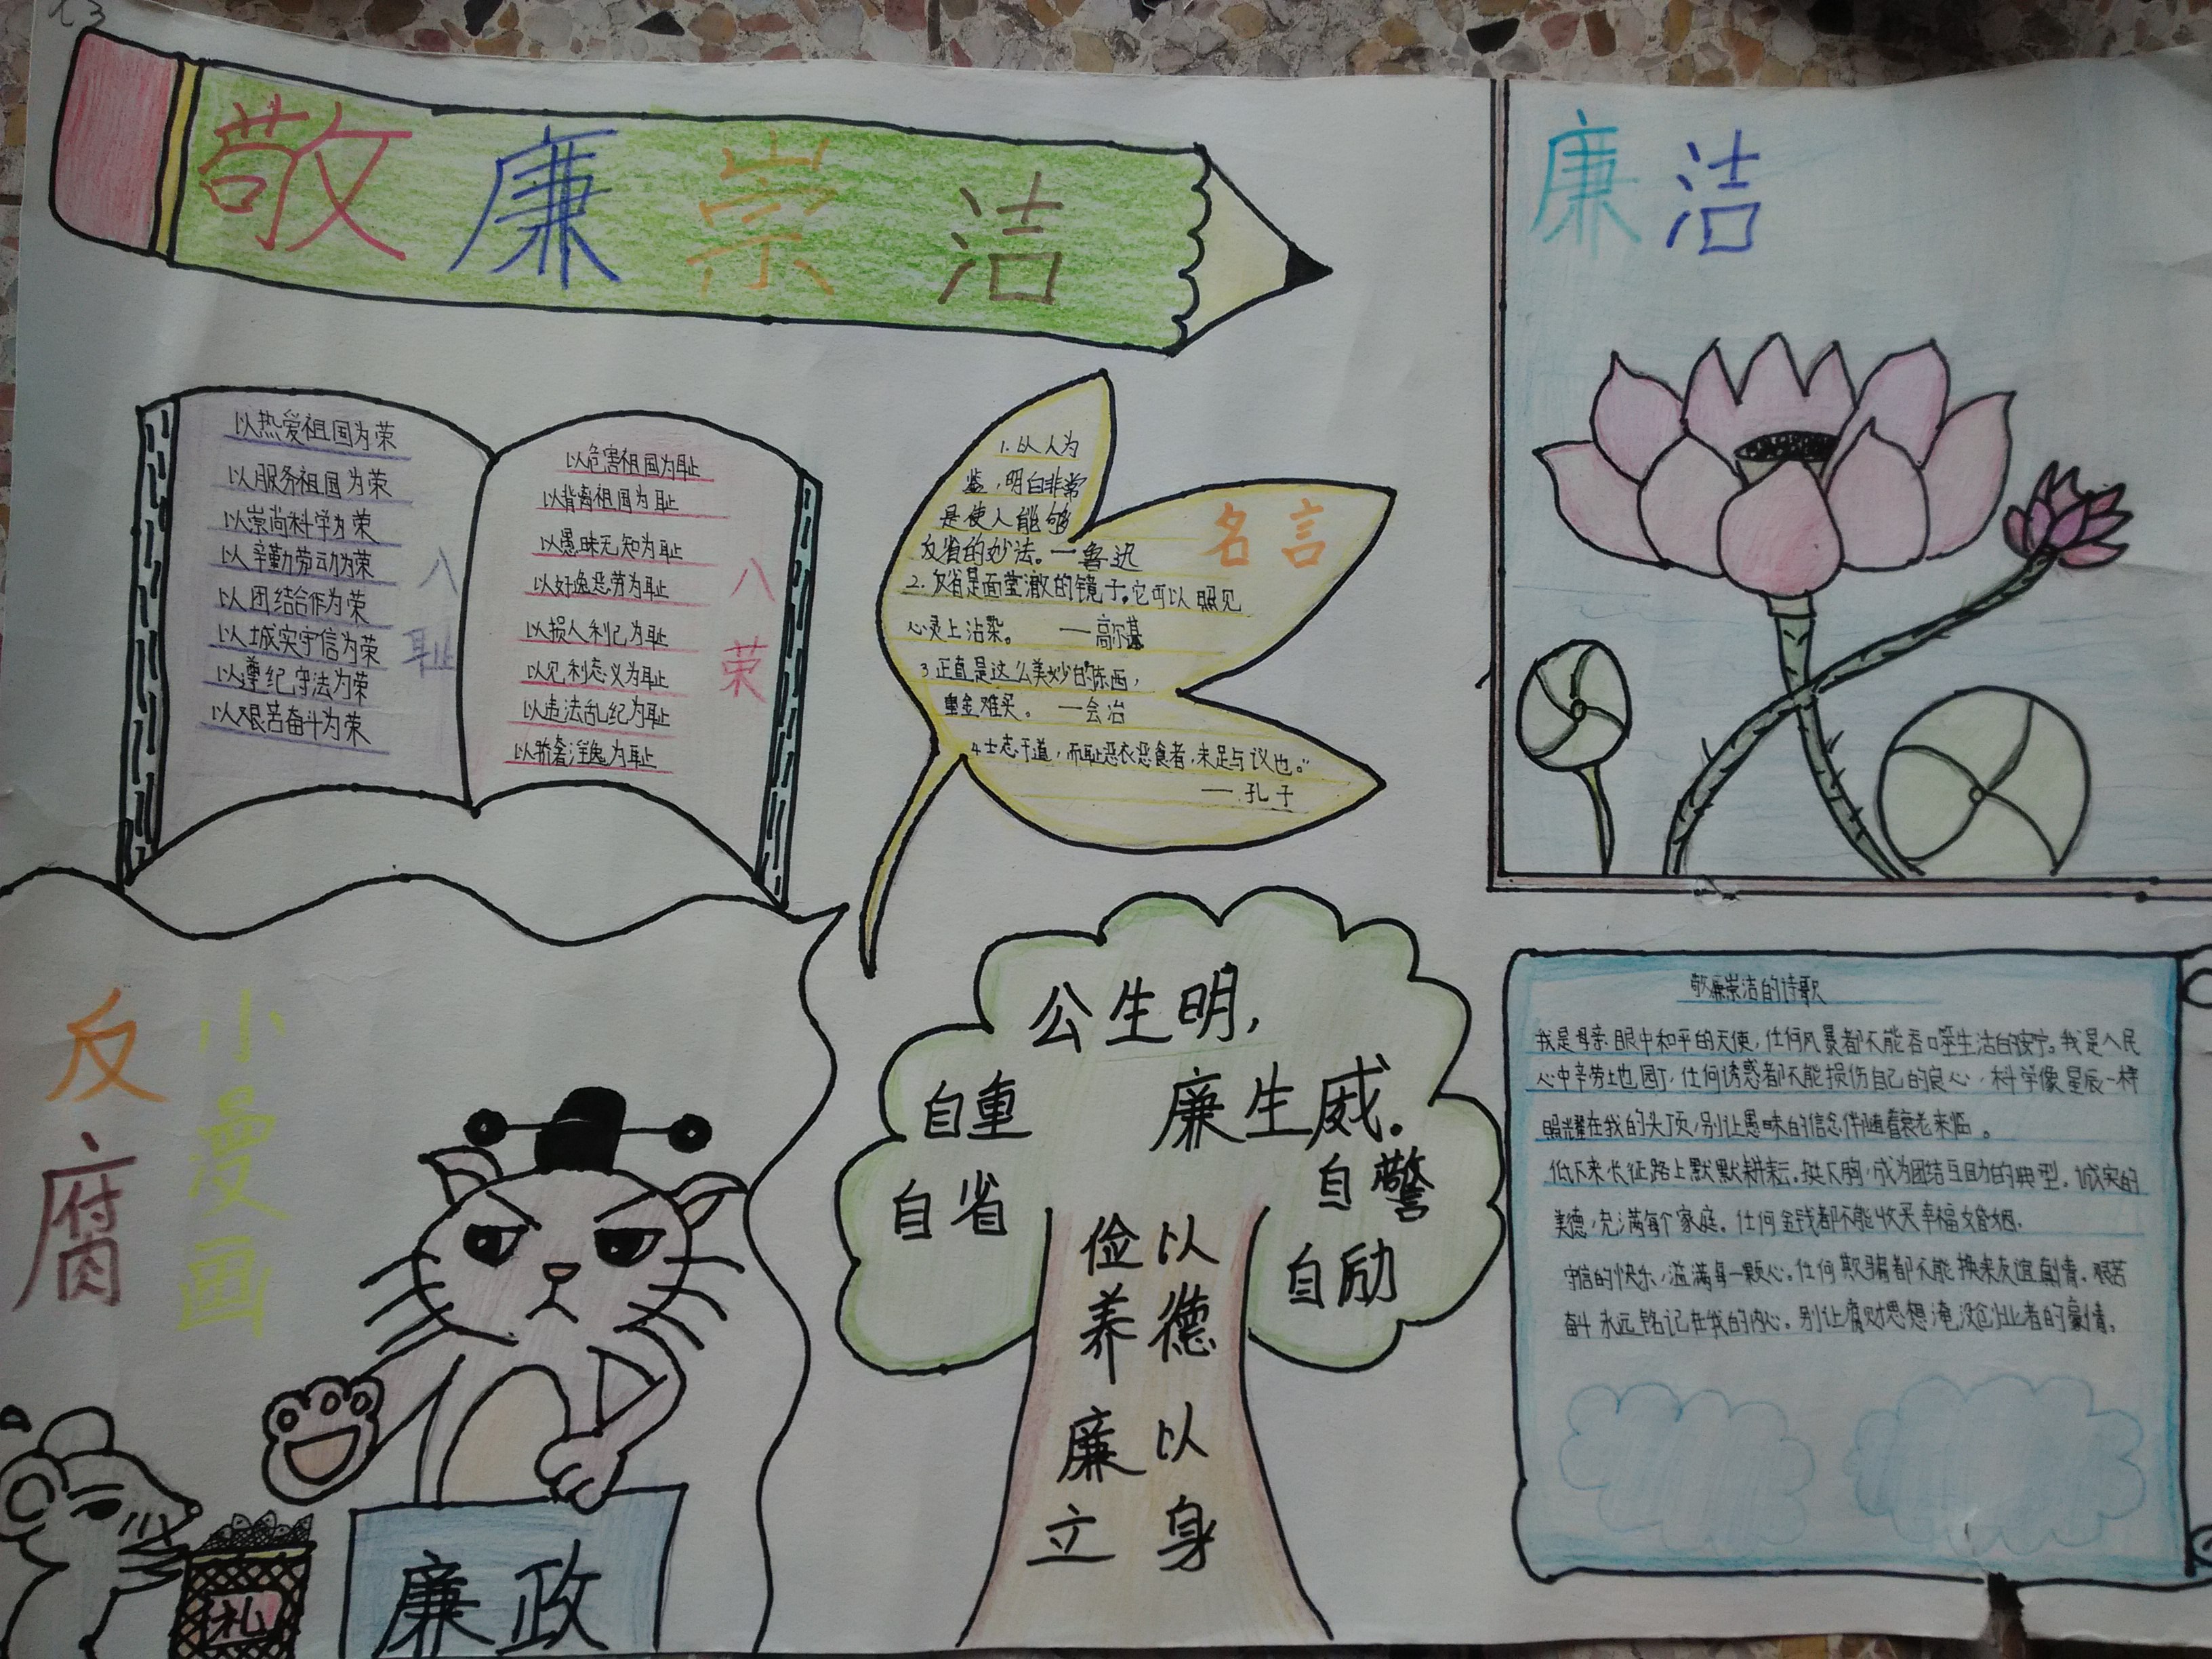 敬廉崇洁
廉洁
以热爱祖国为荣
以服务祖国为荣
以崇尚科学为荣
以辛勤劳动为荣
以团结合作为荣
以城实守信为荣
以遵纪守法为荣
以艰苦奋斗为荣
八耻
以危害祖国为耻
以背离祖国为耻
以愚昧无知为耻
以好逸恶劳为耻
以损人利己为耻
以见利忘义为耻
以违法乱纪为耻
以骄奢淫逸为耻
八荣
名言
1.以人为
鉴，明白非常
是使人能够
反省的妙法。一鲁迅
2.反省是面莹澈的镜子。它可以照见
心灵上沾染。 一高尔基
3.正直是这么美妙的东西，
重金难买。 一会冶
4.士志于道，而耻恶衣恶食者，未足与议也。”
一孔子
反腐
小漫画
礼
廉政
公生明，
廉生威。
自重
自省
自警
自励
以德以身
俭养廉立
敬廉崇洁的诗歌
我是母亲眼中和平的天使，任何风暴都不能吞噬生活的安宁。我是人民
心中辛劳地园丁，任何诱惑都不能损伤自己的良心，科学像星辰一样
照耀在我的头顶，别让愚昧的信念伴随着衰老来临。
低下来长征路上默默耕耘。挺下胸，成为团结互助的典型，诚实的
美德，充满每个家庭。任何金钱都不能收买幸福婚姻。
守信的快乐，溢满每一颗心。任何欺骗都不能换来友谊真情。艰苦
奋斗永远铭记在我的内心。别让腐败思想淹没创业者的豪情。